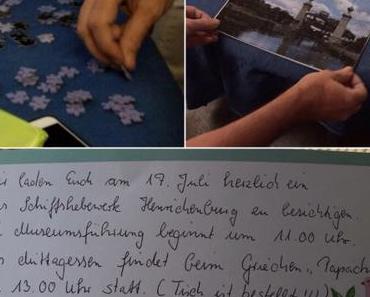 laden Euch am 19. Juli herzlich ein
Schiffshebewerk Henrichenburg zu besichtigen.
Museumsführung beginnt um 11.00 Uhr.
Mittagessen findet beim Griechen
13.00 Uhr statt. (Tisch ist bestellt!!!)